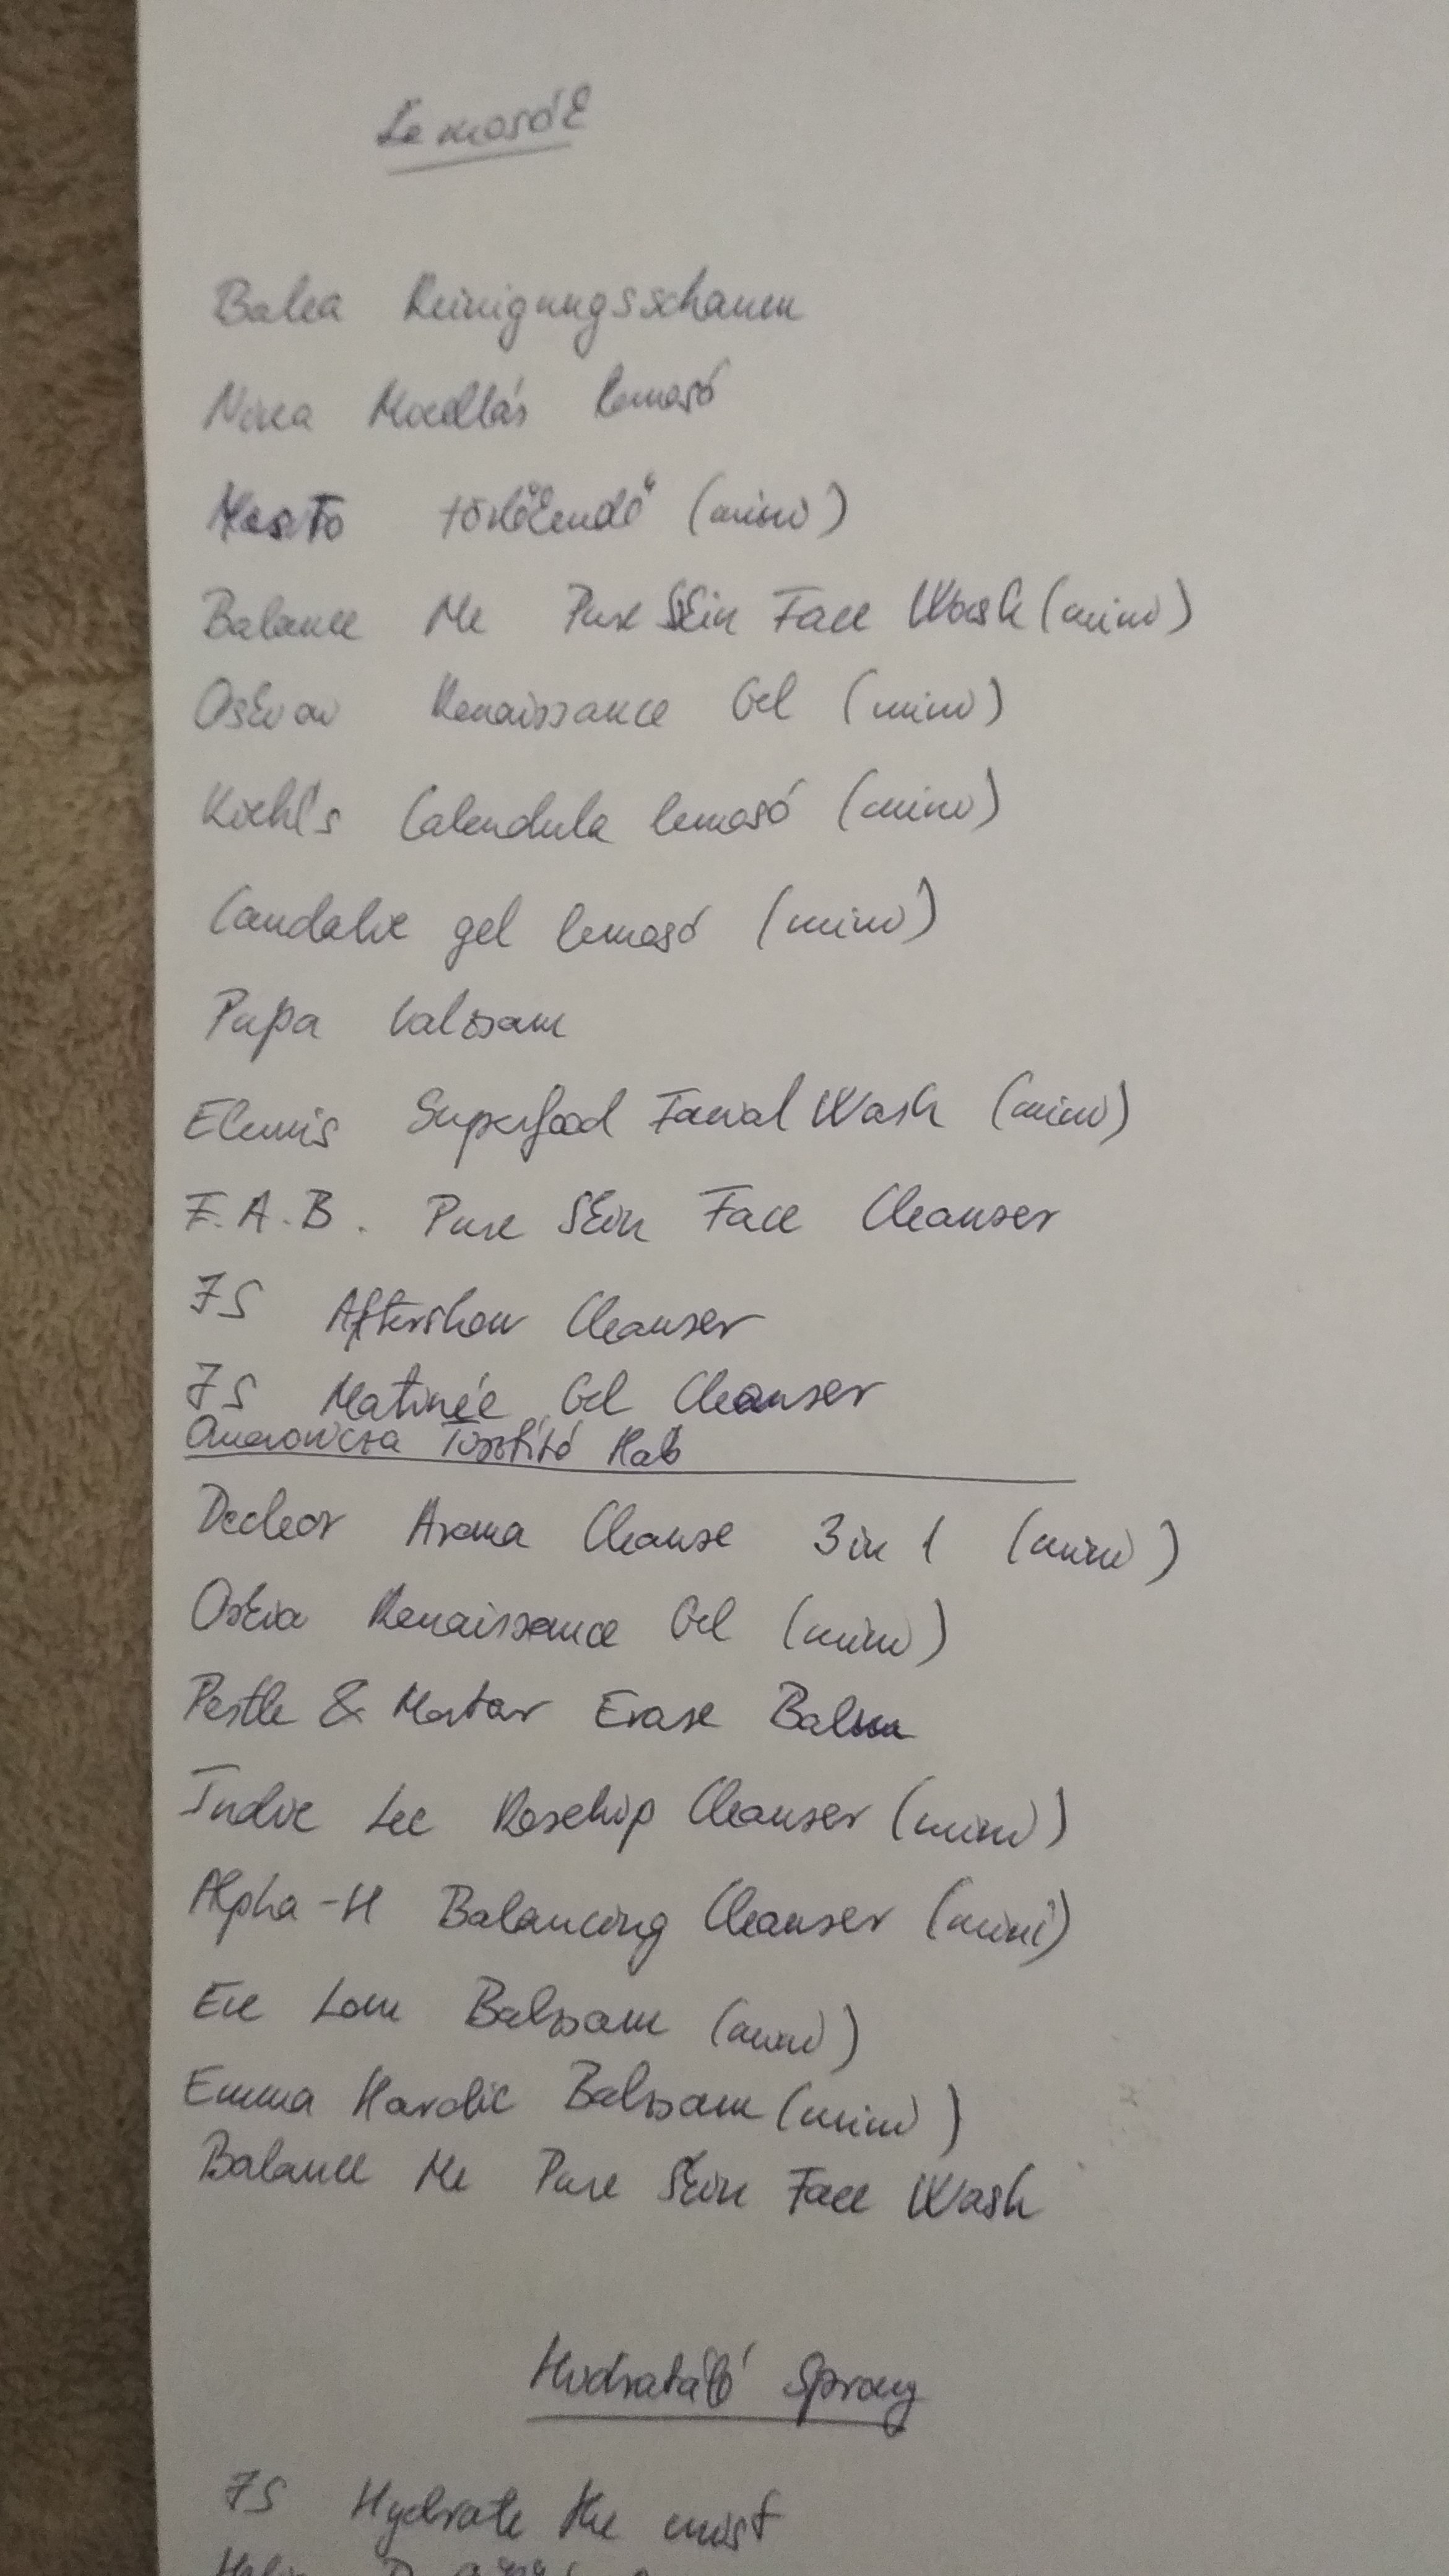 Lemosók
Balea Reinigungsschaum
Nivea Micellás lemosó
törlőkendő (mini)
Balance Me Pure Skin Face Wash (mini)
Oskia Renaissance Gel (mini)
Kiehl's Calendula lemosó (mini)
Caudalie gel lemosó (mini)
Pupa balzsam
Elemis Superfood Facial Wash (mini)
F.A.B. Pure Skin Face Cleanser
FS Aftershow Cleanser
FS Matinée Gel Cleanser
Omorovicza Tisztító Hab
Decleor Aroma Cleanse 3 in 1 (mini)
Oskia Renaissance Gel (mini)
Pestle & Mortar Erase Balm
Indie Lee Rosehip Cleanser (mini)
Alpha-H Balancing Cleanser (mini)
Eve Lom Balzsam (mini)
Emma Hardie Balzsam (mini)
Balance Me Pure Skin Face Wash
Hidratáló Spray
FS Hydrate the mist